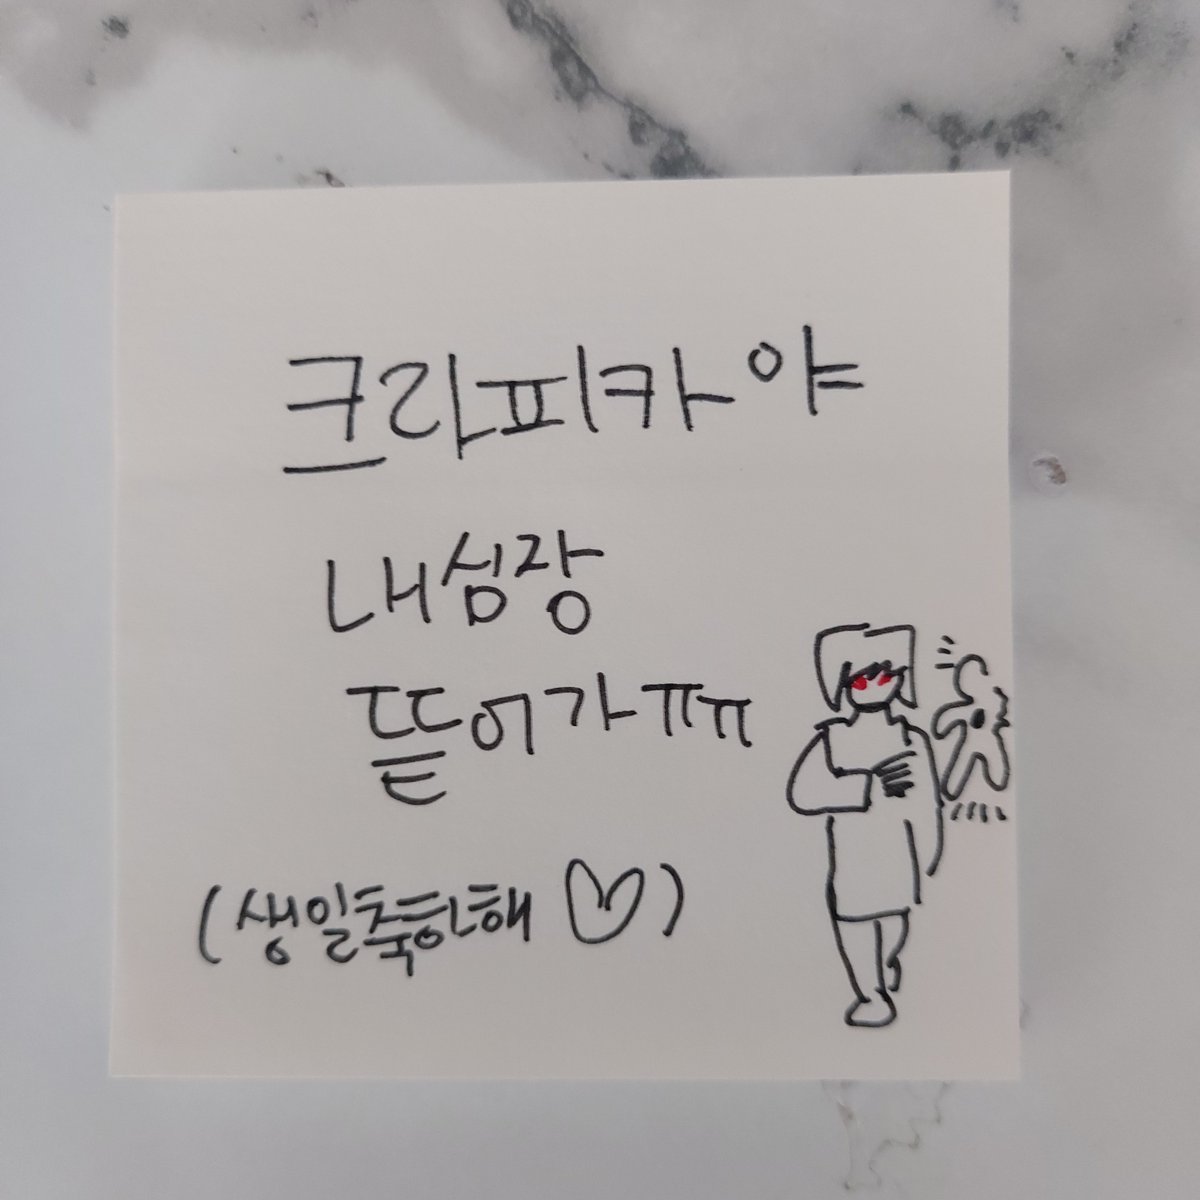 크라피카야
내심장
뜯어가ㅠㅠ
(생일축하해♡)